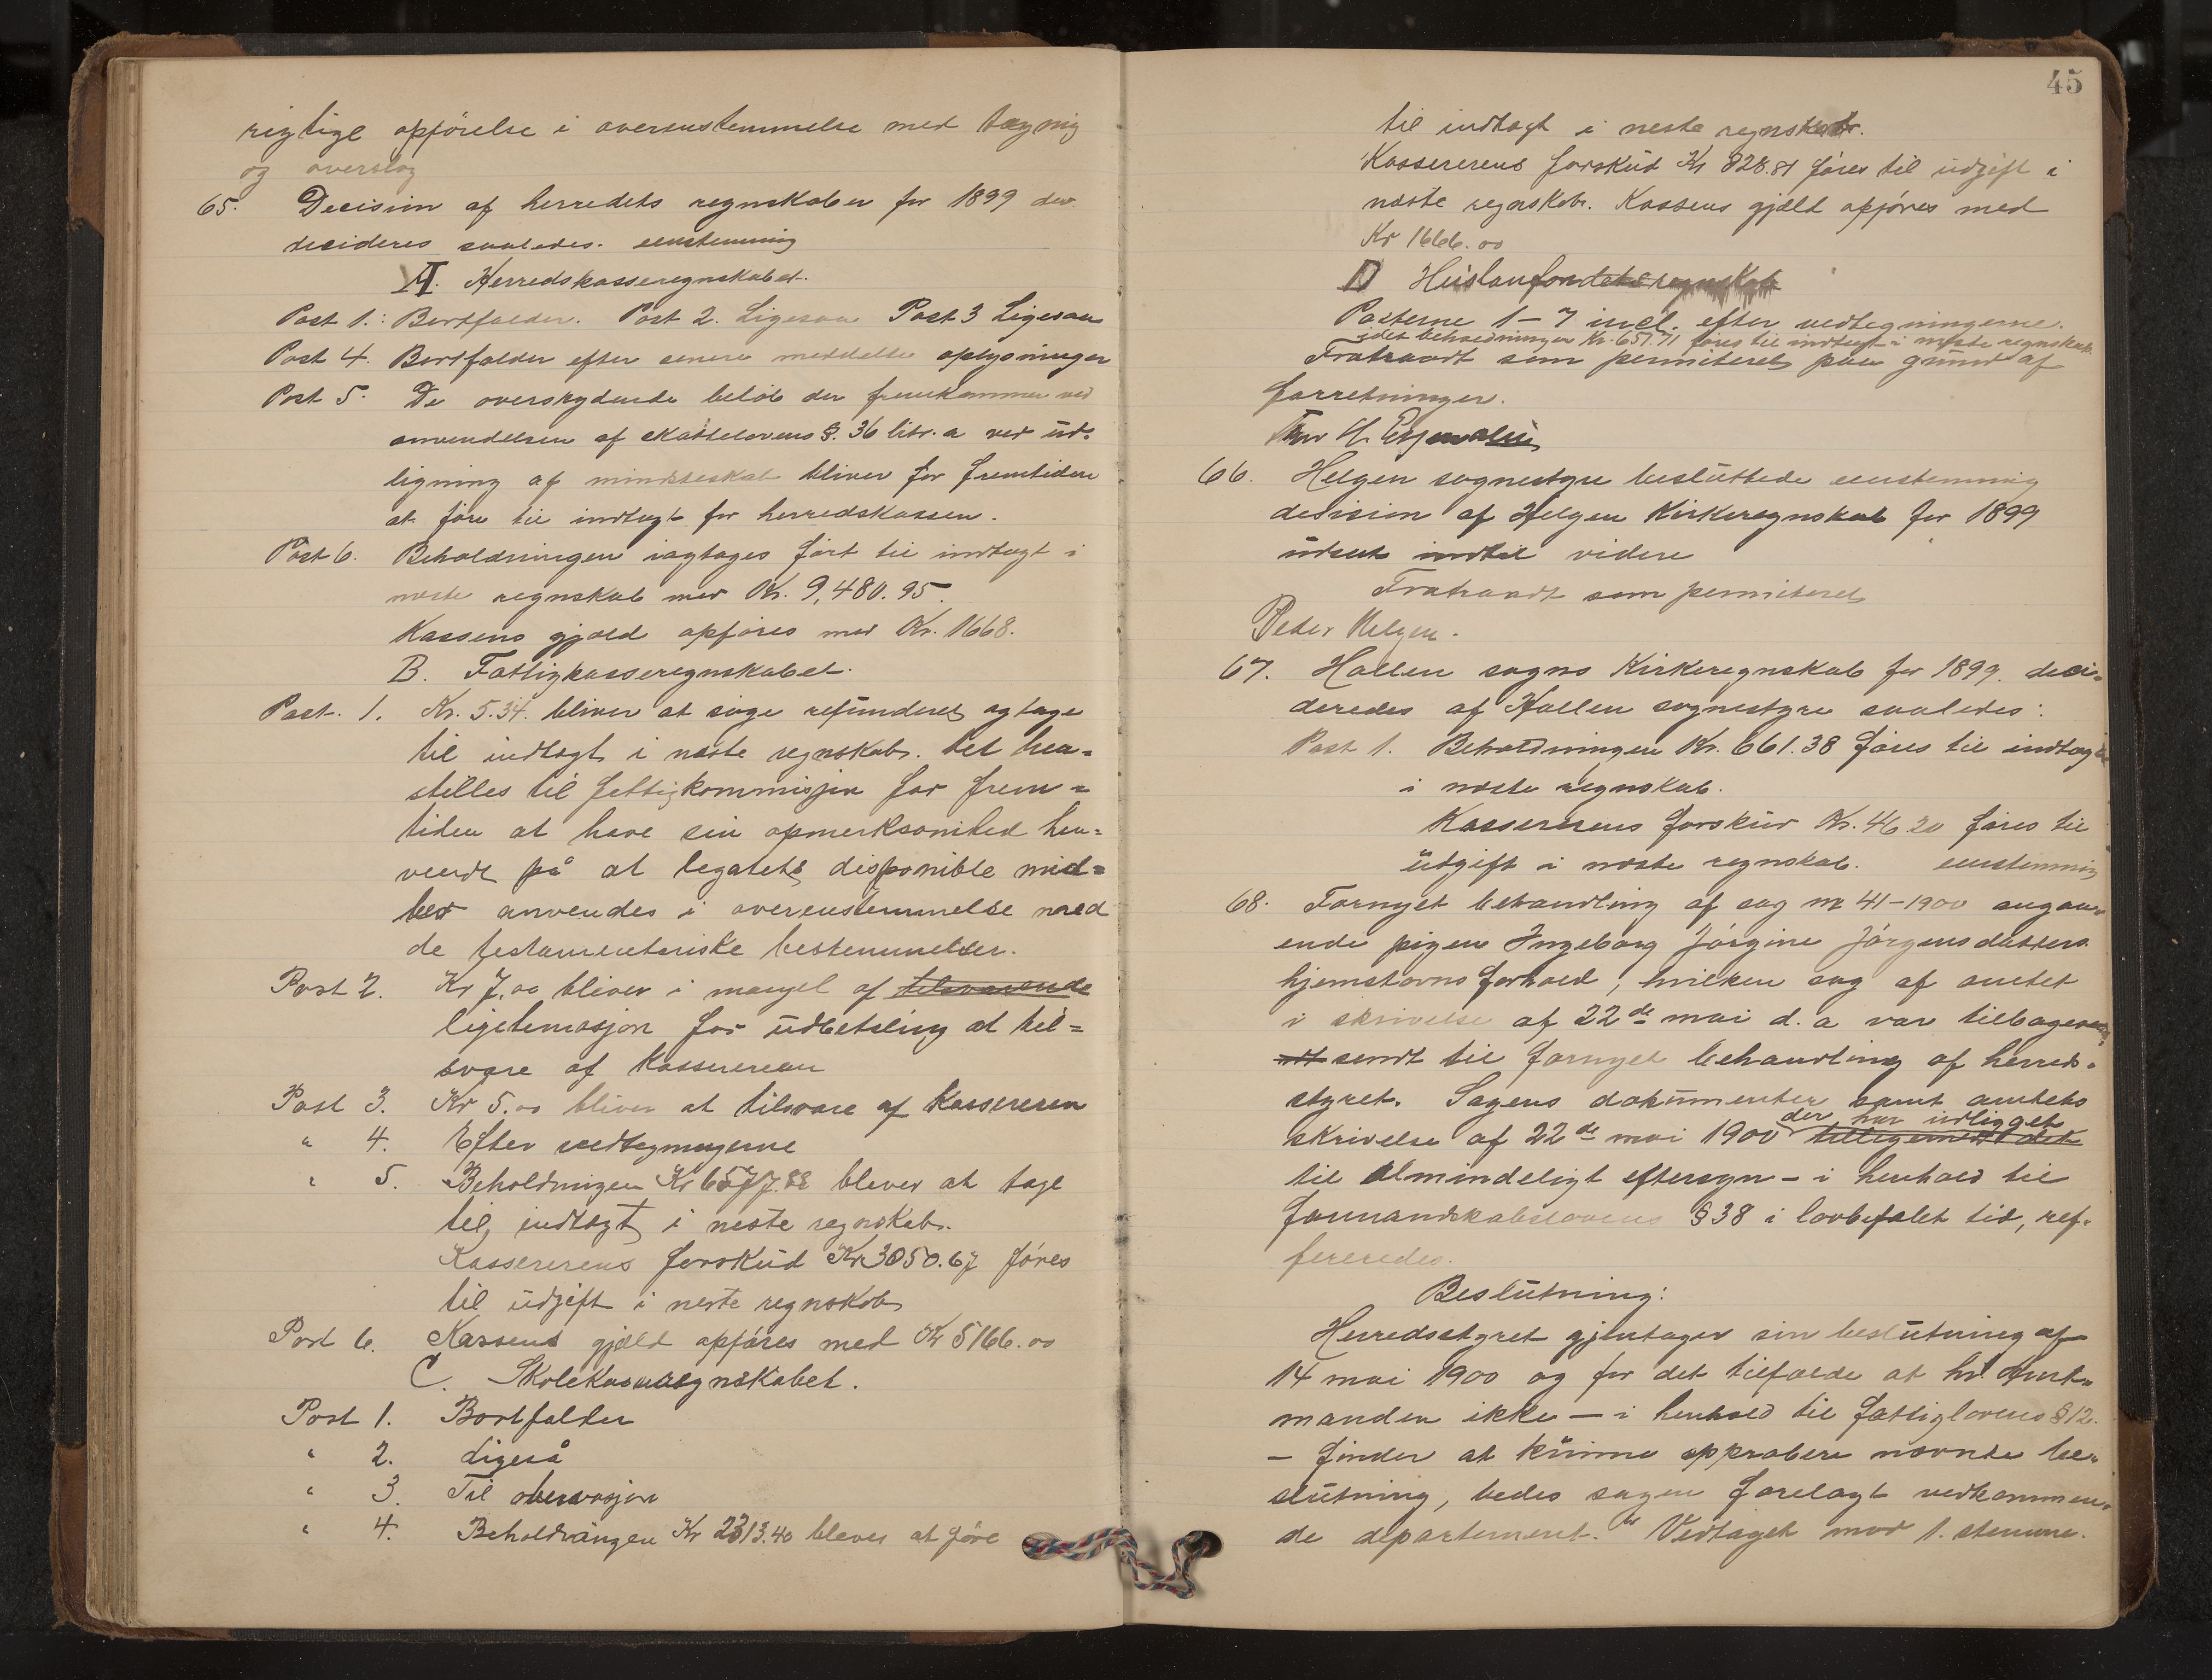 rigtige opførelse i overenstemmelse med tegning
og overslag
65. Decision af herredets regnskaber for 1899
desideres saaledes. eenstemmig
A. Herredskasseregnskabet.
Post 1.: Bortfalder. Post 2. Ligesaa Post 3 Ligesaa
Post 4. Bortfalder efter senere meddelte oplysninger
Post 5. De overskydende beløb der fremkommer ved
anvendelsen af skattelovens §. 36 litr. a ved ud-
ligning af mindsteskat bliver for fremtiden
at føre til indtægt for herredskassen.
Post 6. Beholdningen iagtages ført til indtægt i
næste regnskab med Kr. 9,480.95.
Kassens gjæld opføres med Kr. 1668.
B. Fattigkasseregnskabet.
Post. 1. Kr. 5.34. bliver at søge refunderet og tage
til indtægt i næste regnskab. Det hen=
stilles til fattigkommisjon for frem=
tiden at have sin opmerksomhed hen=
vendt på at legatets disponible mid=
ler anvendes i overenstemmelse med
de testamentariske bestemmelser.
Post 2. Kr 7.00 bliver i mangel af tilsvarende
legitimasjon for udbetaling at til=
svare af Kassereren
Post 3. Kr 5.00 bliver at tilsvare af Kassereren
" 4. Efter vedtegningerne
" 5. Beholdningen Kr 6577.88 bliver at tage
til indtægt i neste regnskab.
Kassererens forskud Kr 3050.67 føres
til udgift i neste regnskab
Post 6. Kassens gjæld opføres med Kr 5166.00
C. Skolekasseregnskabet.
Post 1. Bortfalder
" 2. Ligeså
" 3. Til observasjon
" 4. Beholdningen Kr 2313.40 bliver at føre
45
til indtægt i neste regnskab.
Kassererens forskud Kr 828.81 føres til udgift i
næste regnskab. Kassens gjæld opføres med
Kr 1666.00
D Huslaanfondets regnskab
Posterne 1-7 incl. efter vedtegningerne.
idet beholdningen Kr. 651.71 føres til indtægt i næste regnskab.
Fratraadt som permiteret paa grund af
forretninger.
66. Helgen sognestyre besluttede eenstemmig
desision af Helgen Kirkeregnskab for 1899
udsat indtil videre
Fratraadt som permiteret
Peder Helgen.
67. Hollen sogns Kirkeregnskab for 1899. deci-
deredes af Hollen sognestyre saaledes:
Post 1. Beholdningen Kr. 661.38 føres til indtægt
i næste regnskab.
Kassererens forskud Kr. 46.20 føres til
udgift i næste regnskab. eenstemmig
68. Fornyet behandling af sag nr 41-1900 angaa-
ende pigen Ingeborg Jørgine Jørgensdatters
hjemstavnsforhold, hvilken sag af amtet
i skrivelse af 22de mai d.a var tilbage
sendt til fornyet behandling af herreds-
styret. Sagens dokumenter samt amtets
der har udligget
skrivelse af 22de mai 1900 tilligemed det
til almindeligt eftersyn – i henhold til
formandskabslovens § 38 i lovbefalet tid, ref-
fereredes.
Beslutning:
Herredsstyret gjentager sin beslutning af
14 mai 1900 og for det tilfælde at hr. Amt-
manden ikke – i henhold til fattiglovens § 12.
– finder at kunne approbere nævnte be-
slutning, bedes sagen forelagt vedkommen-
de departement. Vedtaget mod 1. stemme.